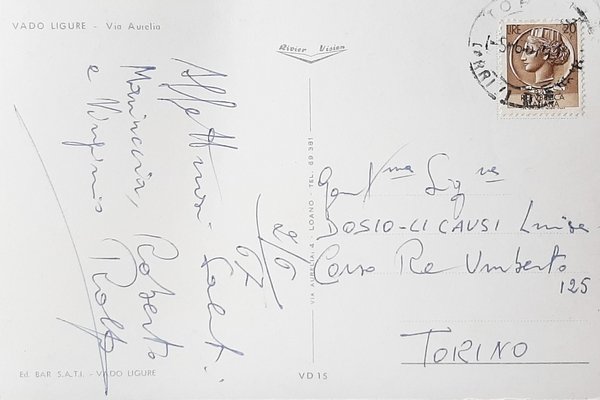 VADO LIGURE - Via Aurelia
Rivier Vision
LIRE 20
Affettuosi Salut.
Marinccia, Roberto
e Virginio Rolfo
2/6
67
VIA AURELIA, 4 - LOANO - TEL. 69 381
Gent.ma Sig.ra
BOSIO-LI CAUSI Luisa
Corso Re Umberto
125
TORINO
Ed. BAR S.A.T.I. - VADO LIGURE
VD 15